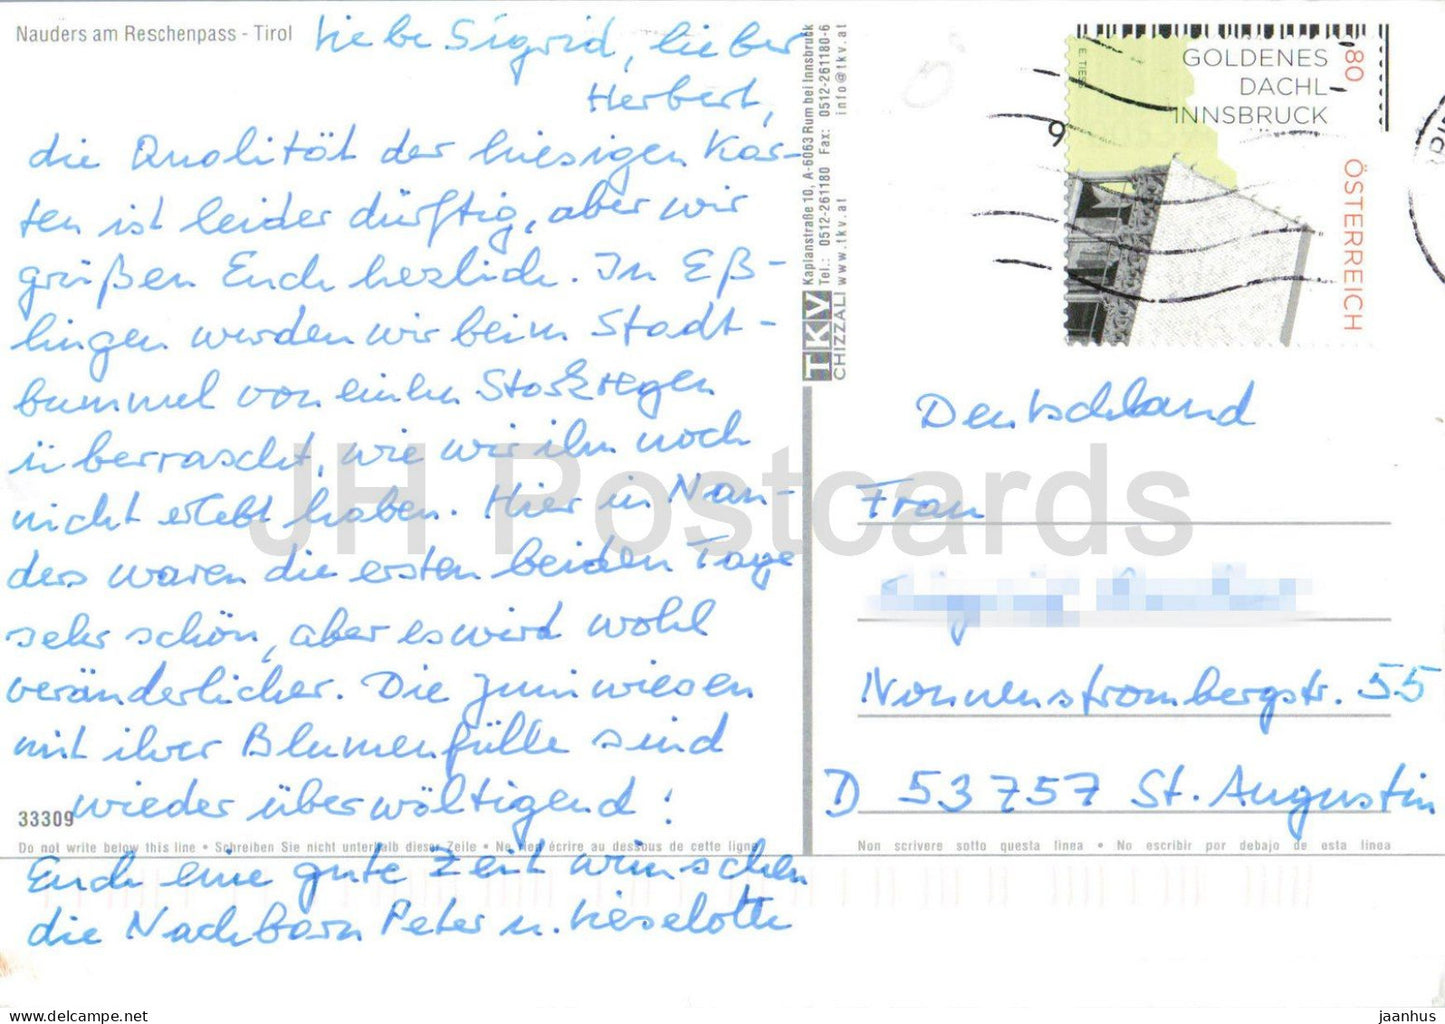 Nauders am Reschenpass - Tirol
Liebe Sigrid, lieber
Herbert,
die Qualität der hiesigen Kar-
ten ist leider dürftig, aber wir
grüßen Euch herzlich. In Eß-
lingen wurden wir beim Stadt-
bummel von einem Starkregen
überrascht, wie wir ihn noch
nicht erlebt haben. Hier in Nau-
ders waren die ersten beiden Tage
sehr schön, aber es wird wohl
veränderlicher. Die Juniwiesen
mit ihrer Blumenfülle sind
wieder überwältigend!
33309
Do not write below this line • Schreiben Sie nicht unterhalb dieser Zeile • Ne rien écrire au dessous de cette ligne
Euch eine gute Zeit wünschen
die Nachbarn Peter u. Lieselotte
TKV
CHIZZALI
Kaplanstraße 10, A-6063 Rum bei Innsbruck
Tel.: 0512-261180 Fax: 0512-261180-6
www.tkv.at info@tkv.at
GOLDENES
DACHL
INNSBRUCK
80
ÖSTERREICH
9
Deutschland
Frau
Nonnenstrombergstr. 55
D 53757 St. Augustin
Non scrivere sotto questa linea • No escribir por debajo de esta linea
JH Postcards
https://www.hippostcard.com/store/jaanhu
jaanhus